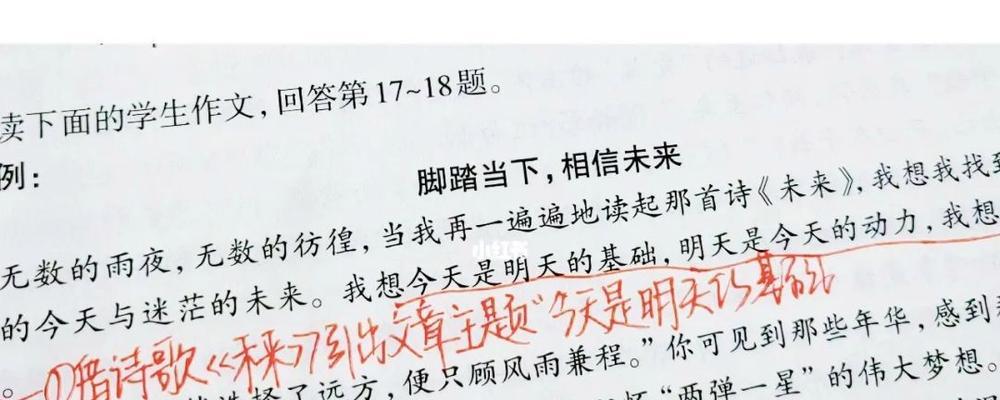 读下面的学生作文，回答第17~18题。
例：
脚踏当下，相信未来
无数的雨夜，无数的彷徨，当我再一遍遍地读起那首诗《未来》，我想我找到
小红书
的今天与迷茫的未来。我想今天是明天的基础，明天是今天的动力，我想
①借诗歌《未来》引出文章主题"今天是明天的基础
选择了远方，便只顾风雨兼程。”你可见到那些年华，感到
“两弹一星”的伟大梦想。